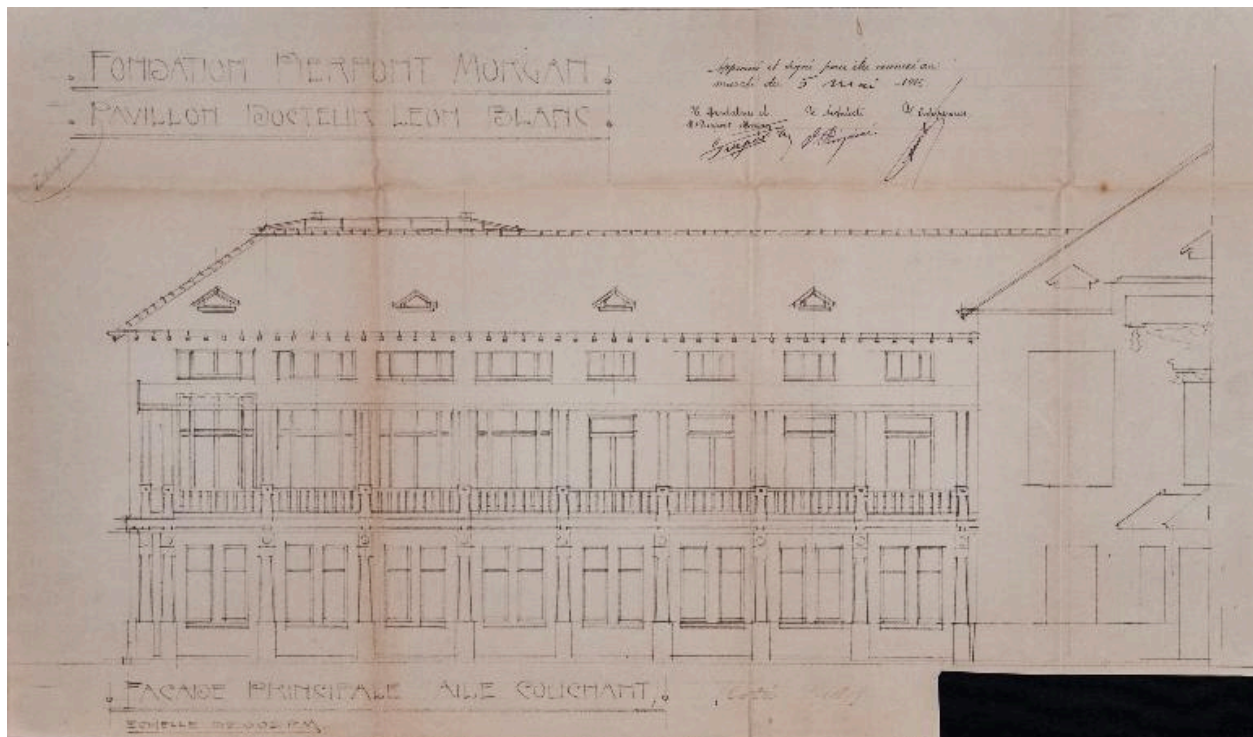 FONDATION PIERPONT MORGAN
PAVILLON DOCTEUR LEON BLANC
Approuvé et signé pour être annexé au
marché du 5 mai
L'Architecte
L'Entrepreneur
FAÇADE PRINCIPALE AILE COUCHANT
ECHELLE DE 0.02 P.M.